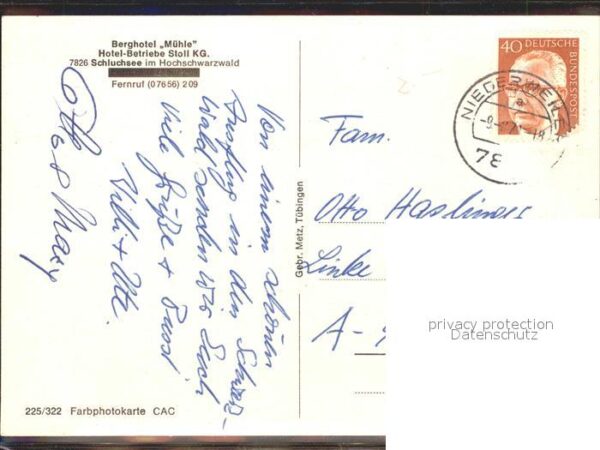 Berghotel „Mühle"
Hotel-Betriebe Stoll KG.
7826 Schluchsee im Hochschwarzwald
Fernruf (07656) 209
Von einem schönen
Ausflug in den Schwarz-
wald senden wir Euch
viele Grüße + Bussi
Willi +
Otto & Mary
225/322 Farbphotokarte CAC
Gebr. Metz, Tübingen
40 DEUTSCHE
BUNDESPOST
a
78
Fam.
Otto Haslinger
Linke
A-
privacy protection
Datenschutz